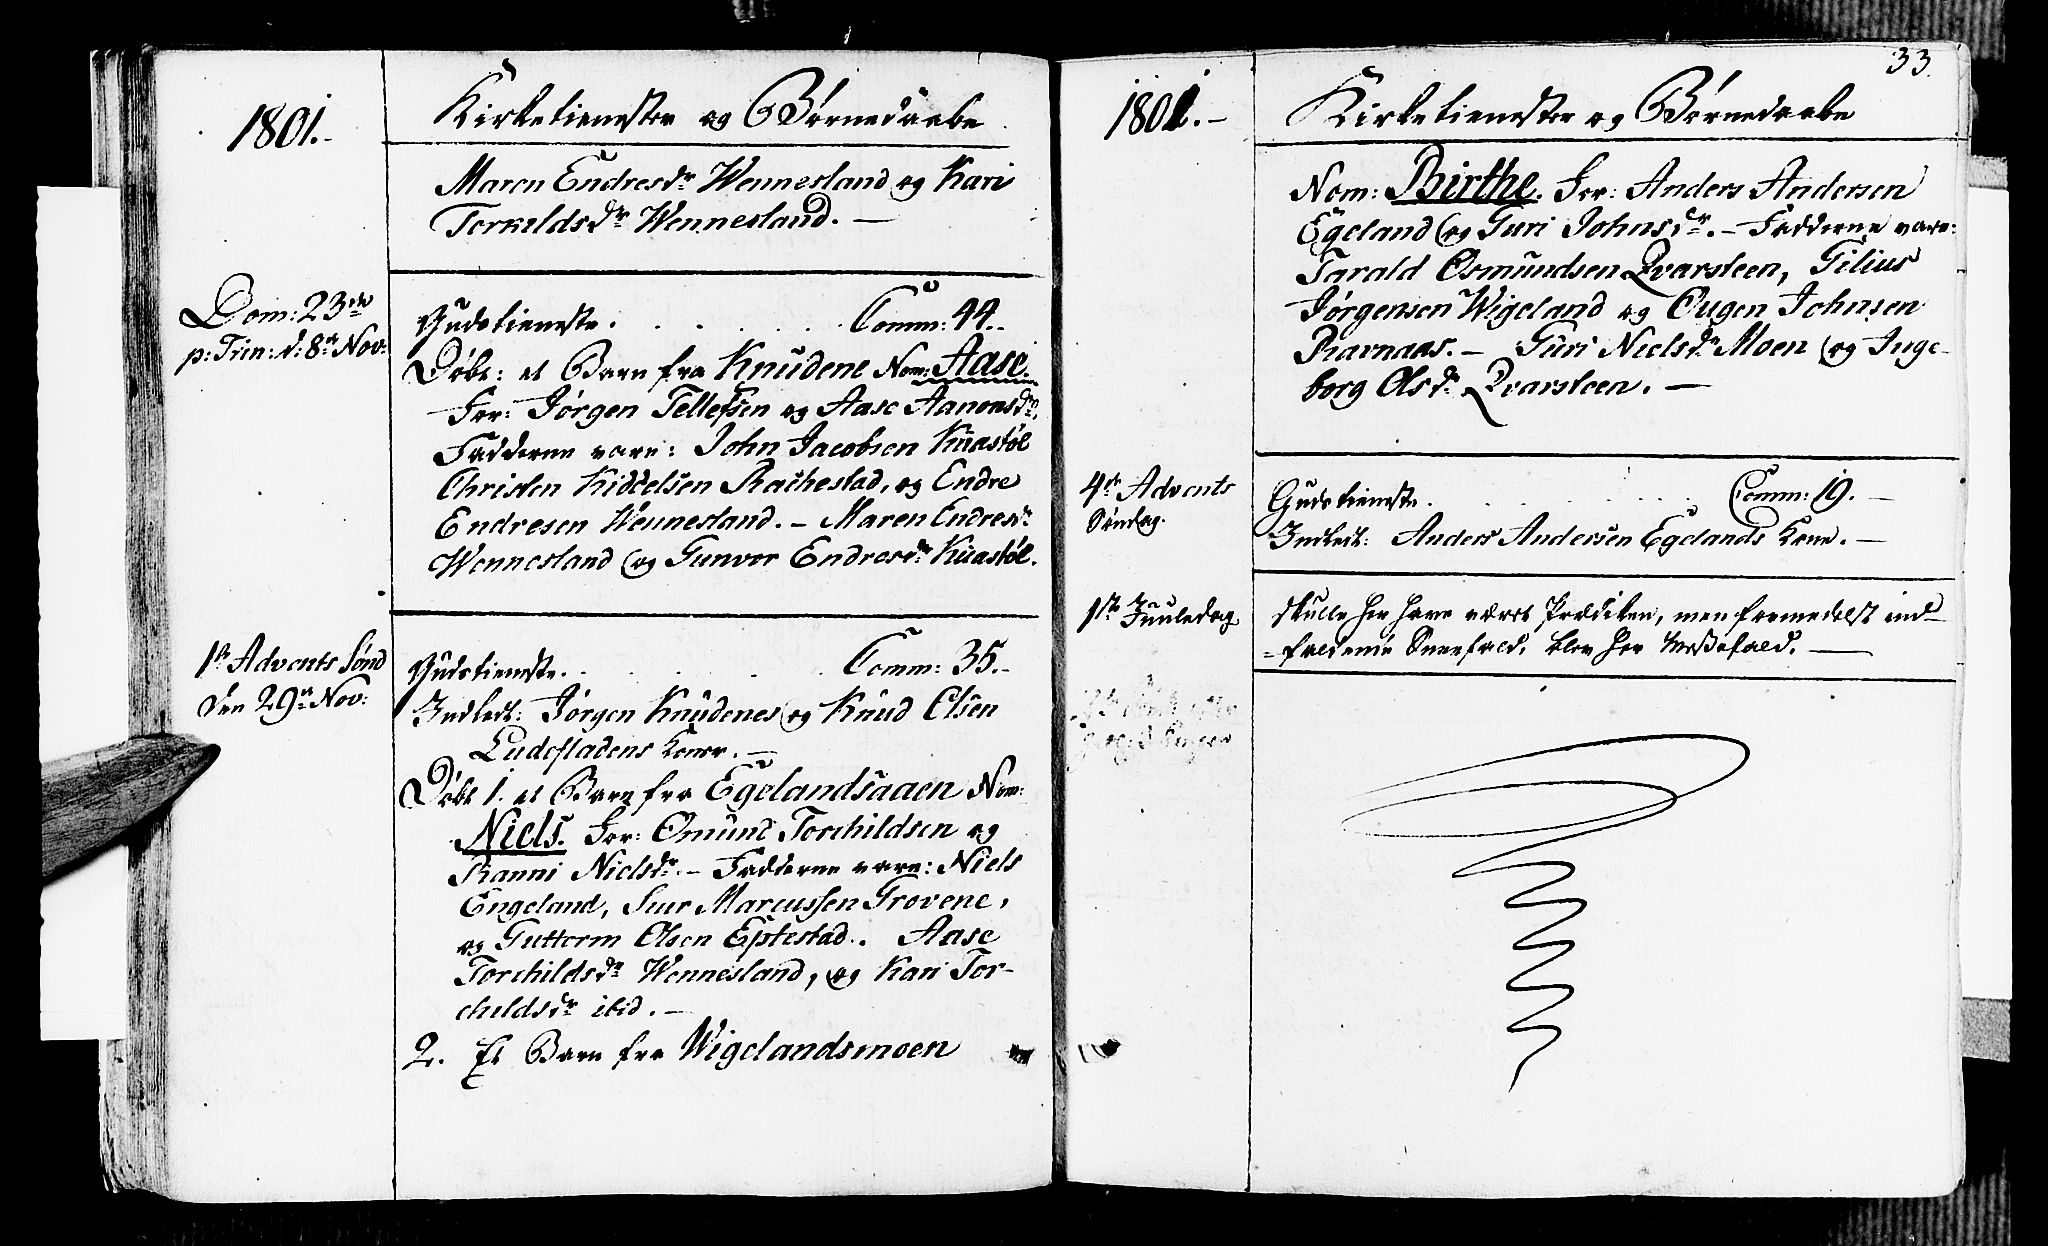 1801.-
Kirketienester og Børnedaabe
Maren Endresdr Wennesland og Kari
Torkildsdr Wennesland. —
Dom: 23de
p: Trin: d: 8de Nov:
Gudstieneste. . . . . . . Comm: 44..
Døbt: et Barn fra Knudene Nom: Aase.
For: Jørgen Tellefsen og Aase Aanonsdr.
Fadderne vare: John Jacobsen Kuastøl
Christen Kiddelsen Rachestad, og Endre
Endresen Wennesland. - Maren Endresdr
Wennesland og Gunvor Endresdr Kuastøl.
1ste Advents Sønd
den 29de Nov:
Gudstieneste. . . . . . Comm: 35.-
Indledt: Jørgen Knudenes og Knud Olsen
Ludefladens Koner. —
Døbt 1. et Barn fra Egelandsaaen Nom:
Niels. For: Omund Torchildsen og
Ranni Nielsdr. - Fadderne vare: Niels
Engeland, Siur Marcussen Grovene,
og Guttorm Olsen Eptestad. Aase
Torchildsdr Wennesland, og Kari Tor-
childsdr ibid. —
2. Et Barn fra Wigelandsmoen
33
1801.-
Kirketienester og Børnedaabe
Nom: Birthe. For: Anders Andersen
Egeland og Guri Johnsdr. - Fadderne vare:
Tarald Osmundsen Qvarsteen, Gilius
Jørgensen Wigeland og Ougen Johnsen
Ravnaas. - Guri Nielsdr Moen og Inge-
borg Olsdr Qvarsteen. —
4de Advents
Søndag.
Gudstieneste. . . . . . . Comm: 19. -
Indledt: Anders Andersen Egelands Kone. —
1ste Juuledag
Skulle her have været Prædiken, men formedelst ind-
=faldende Sneefald, blev her Messefald. —